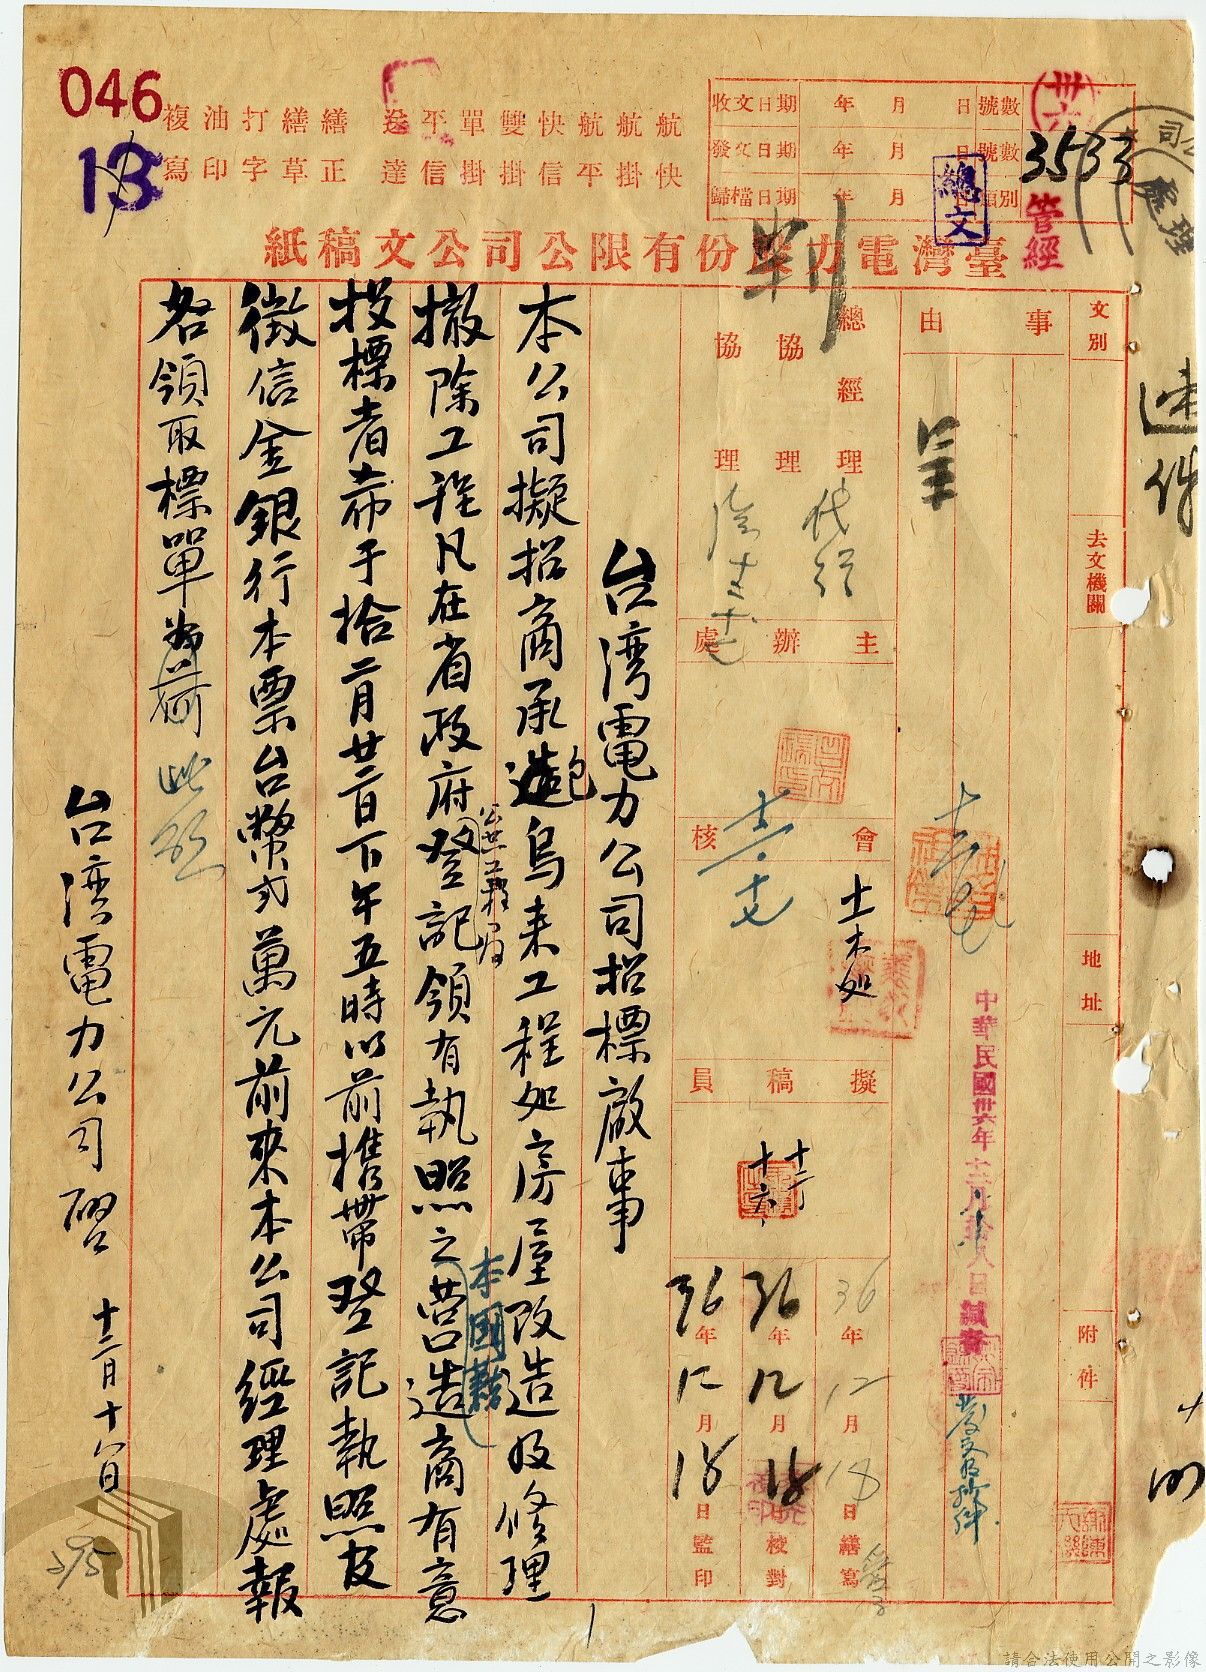 046
13
複寫
油印
打字
繕草
繕正
送達
平信
單掛
雙掛
快信
航平
航掛
航快
收文日期 年 月 日 號數
發文日期 年 月 日 號數
歸檔日期 年 月 日 類別
卅六
3533
管經
總文
臺灣電力股份有限公司公文稿紙
判
速件
文別
去文機關
地址
附件
事由
呈
中華民國卅六年十二月拾八日緘齊
發文後抄件
總經理
協理
協理
主辦處
會核
土木処
擬稿員
36年12月18日繕寫
36年12月18日校對
36年12月18日監印
台湾電力公司招標啟事
本公司擬招商承包烏来工程処房屋改造及修理
撤除工程凡在省政府公共工程局登記領有執照之本國籍营造商有意
投標者希于拾二月廿二日下午五時以前携帶登記執照及
徵信金銀行本票台幣弍萬元前來本公司經理處報
名領取標單為荷此啟
台湾電力公司啓
十二月十八日
395
請合法使用公開之影像